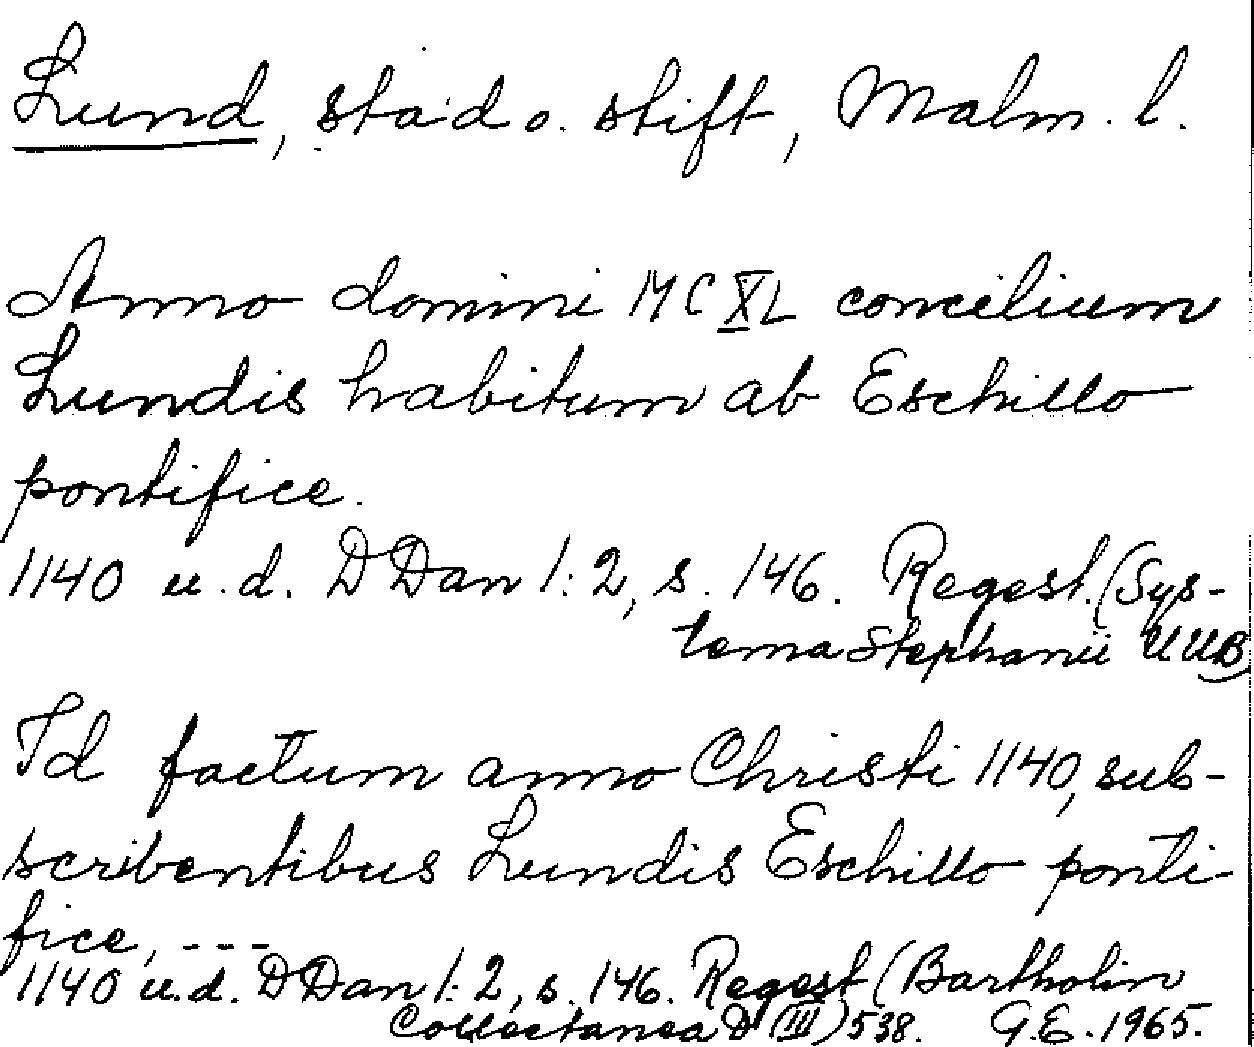 Lund, stad o. stift, Malm. l.
Anno domini MCXL concilium
Lundis habitum ab Eschillo
pontifice.
1140 u.d. DDan 1:2, s. 146. Regest. (Sys-
tema Stephanii UUB)
Id factum anno Christi 1140, sub-
scribentibus Lundis Eschillo ponti-
fice, ---
1140 u.d. DDan 1:2, s. 146. Regest (Bartholin
Collectanea D (III) 538. G.E. 1965.